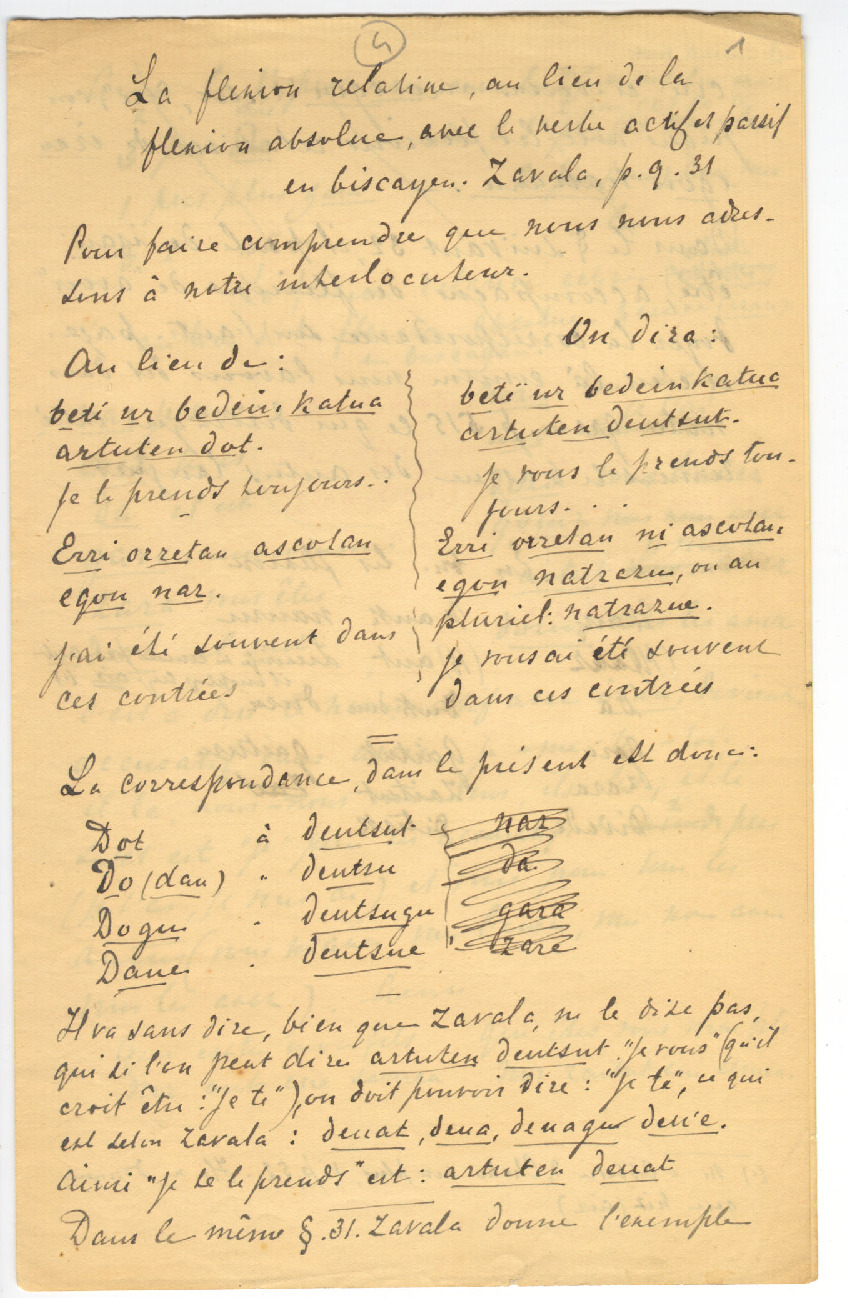 4
1
La flexion relative, au lieu de la
flexion absolue, avec le verbe actif et passif
en biscayen. Zavala, p. 9. 31
Pour faire comprendre que nous nous adres-
sons à notre interlocuteur.
Au lieu de :
beti ur bedeinkatua
artuten dot.
je le prends toujours.
Erri orretan ascotan
egon naz.
j'ai été souvent dans
ces contrées
On dira :
beti ur bedeinkatua
artuten deutsut.
je vous le prends tou-
jours.
Erri orretan ni ascotan
egon natzazu, ou au
pluriel: natzazue.
je vous ai été souvent
dans ces contrées
La correspondance, dans le présent est donc:
Dot à deutsut naz
Do (dau) " deutsu da
Dogu " deutsugu gara
Daue " deutsue zare
Il va sans dire, bien que Zavala, ne le dise pas,
qui si l'on peut dire artuten deutsut "je vous" (qu'il
croit être : "je te"), on doit pouvoir dire : "je te", ce qui
est selon Zavala : deuat, deua, deuagu deue.
Ainsi "je te le prends" est : artuten deuat
Dans le même §. 31. Zavala donne l'exemple